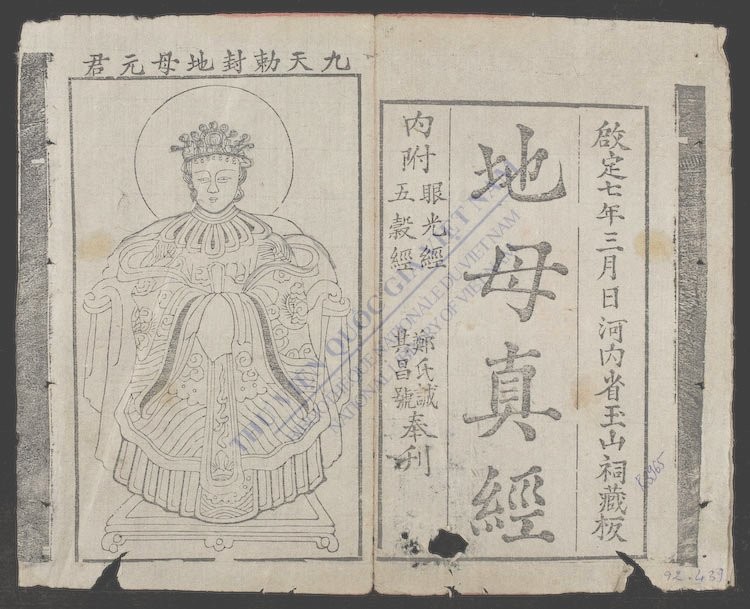 啟定七年三月日河內省玉山祠藏板
地母真經
內附眼光經五穀經
鄭氏誠其昌號奉刊
九天勅封地母元君
THƯ VIỆN QUỐC GIA VIỆT NAM
BIBLIOTHÈQUE NATIONALE DU VIETNAM
NATIONAL LIBRARY OF VIETNAM
92.439